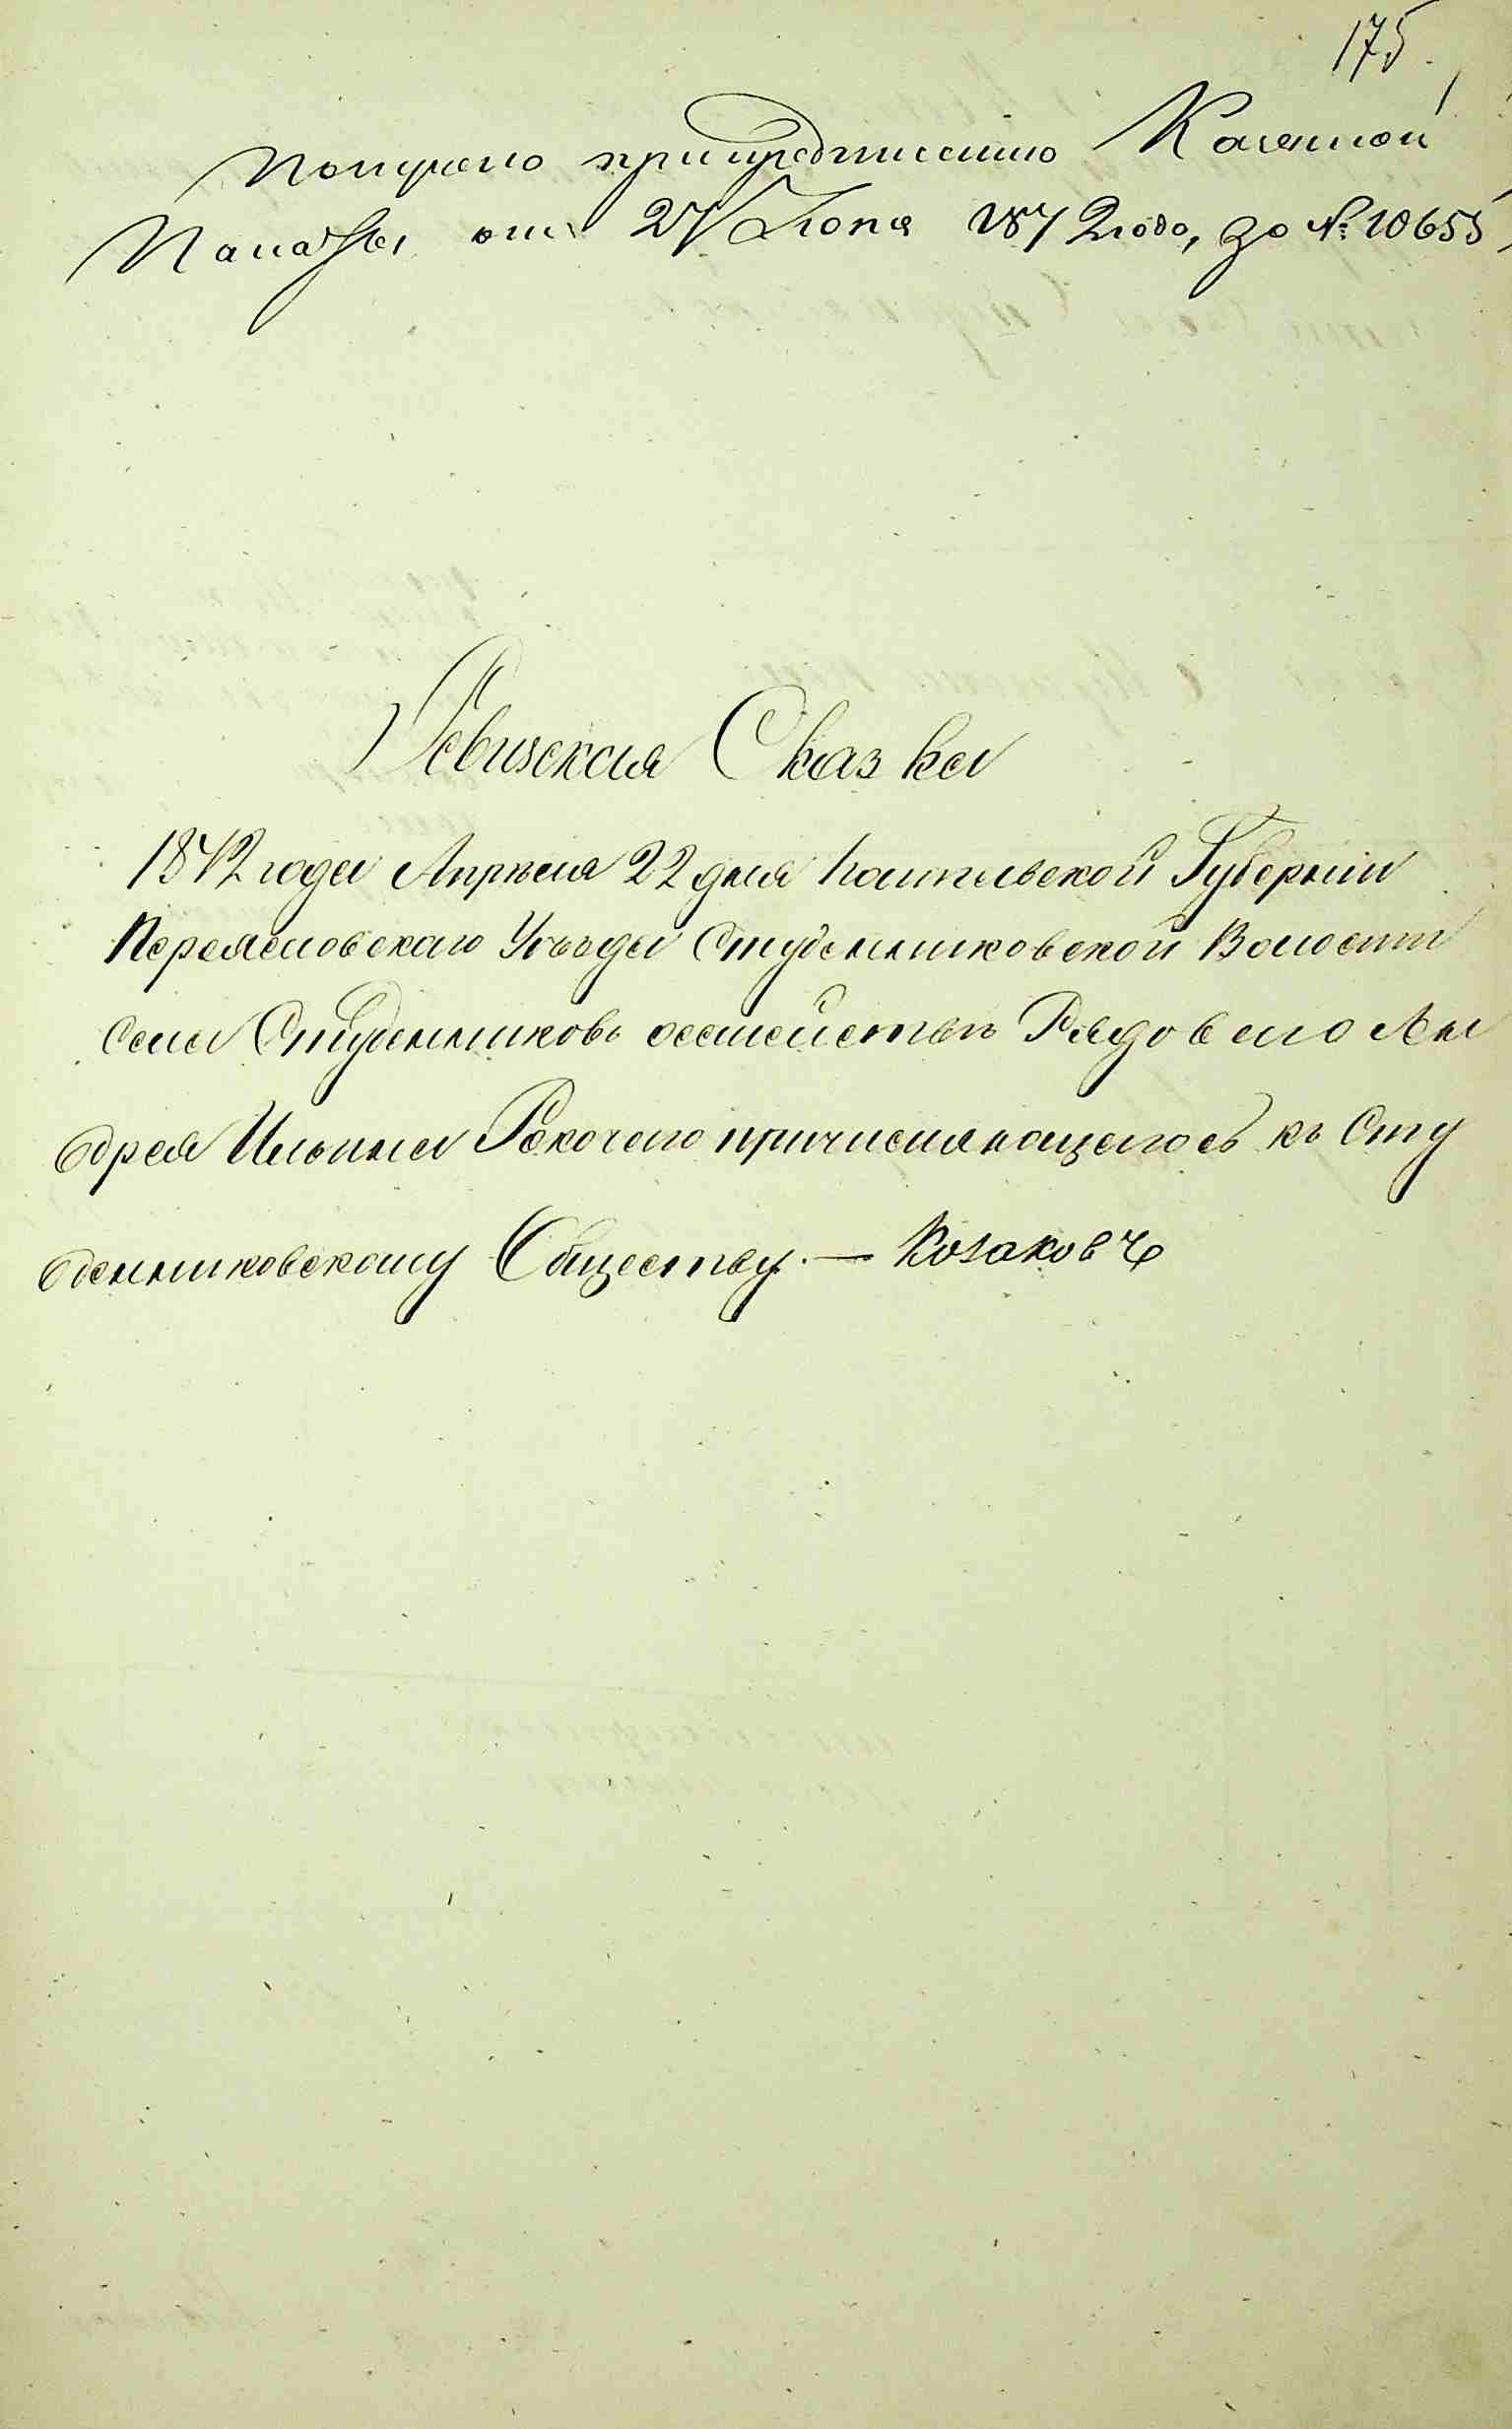 175.
Получено при предписанiю Казенной
Палаты отъ 27 Iюня 1872 года, за № 10655,
Ревизская Сказка
1872 года Апрѣля 22 дня Полтавской Губернiи
Переяславскаго Уѣзда Студенниковской Волости
села Студенниковъ осемействѣ Рядоваго Ан
дрея Ильина Рекочаго причисляющагось къ Сту
денниковскому Обществу. — Козаковъ